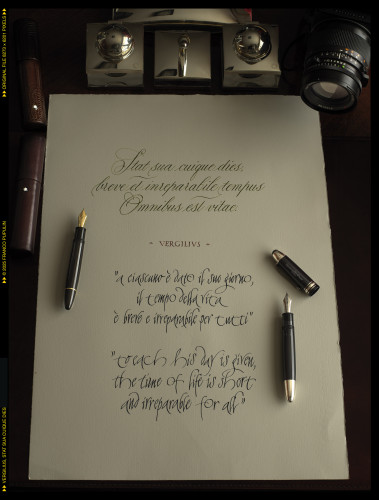 Stat sua cuique dies,
breve et inreparabile tempus
Omnibus est vitae.
- VERGILIVS -
"a ciascuno è dato il suo giorno,
il tempo della vita
è breve e irreparabile per tutti"
"to each his day is given,
the time of life is short
and irreparable for all"
▶▶ ORIGINAL FILE 6373 × 8281 PIXELS ▶▶
▶▶ © 2025 FRANCO PUPULIN
▶▶ VERGILIUS, STAT SUA CUIQUE DIES